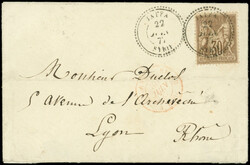 JAFFA
22
JUIN
77
SYRIE
30
Monsieur Duclos
5 Avenue de l'Archevêché
Lyon
Rhône